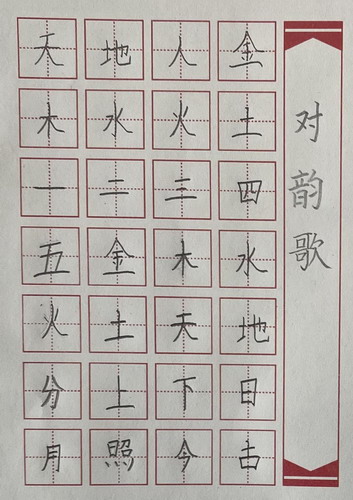 对韵歌
天地人金
木水火土
一二三四
五金木水
火土天地
分上下日
月照今古